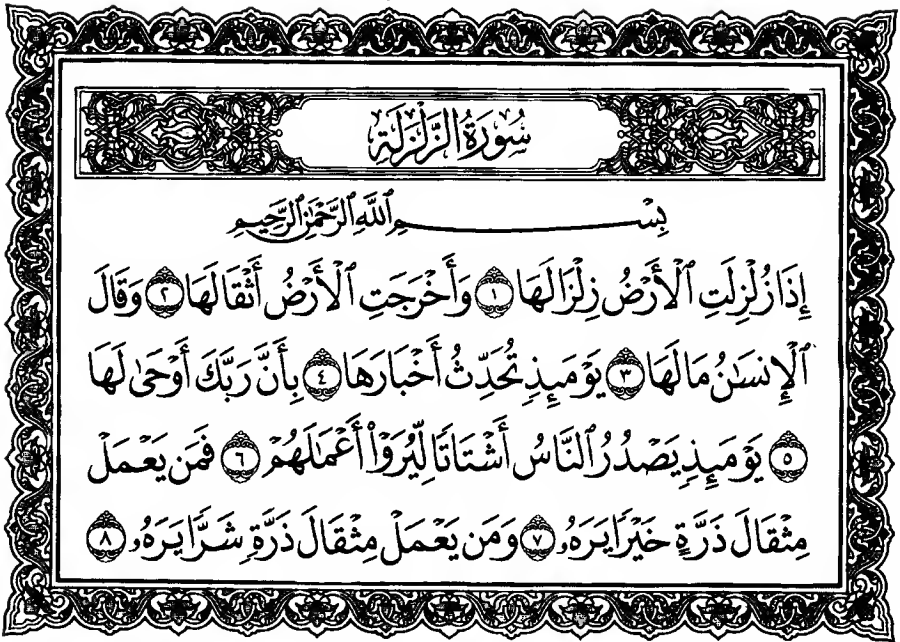 سُورَةُ الزَّلْزَلَةِ
بِسْمِ ٱللَّهِ ٱلرَّحْمَٰنِ ٱلرَّحِيمِ
إِذَا زُلْزِلَتِ ٱلْأَرْضُ زِلْزَالَهَا ١ وَأَخْرَجَتِ ٱلْأَرْضُ أَثْقَالَهَا ٢ وَقَالَ
ٱلْإِنسَٰنُ مَالَهَا ٣ يَوْمَئِذٍ تُحَدِّثُ أَخْبَارَهَا ٤ بِأَنَّ رَبَّكَ أَوْحَىٰ لَهَا
٥ يَوْمَئِذٍ يَصْدُرُ ٱلنَّاسُ أَشْتَاتًا لِّيُرَوْا۟ أَعْمَٰلَهُمْ ٦ فَمَن يَعْمَلْ
مِثْقَالَ ذَرَّةٍ خَيْرًا يَرَهُۥ ٧ وَمَن يَعْمَلْ مِثْقَالَ ذَرَّةٍ شَرًّا يَرَهُۥ ٨